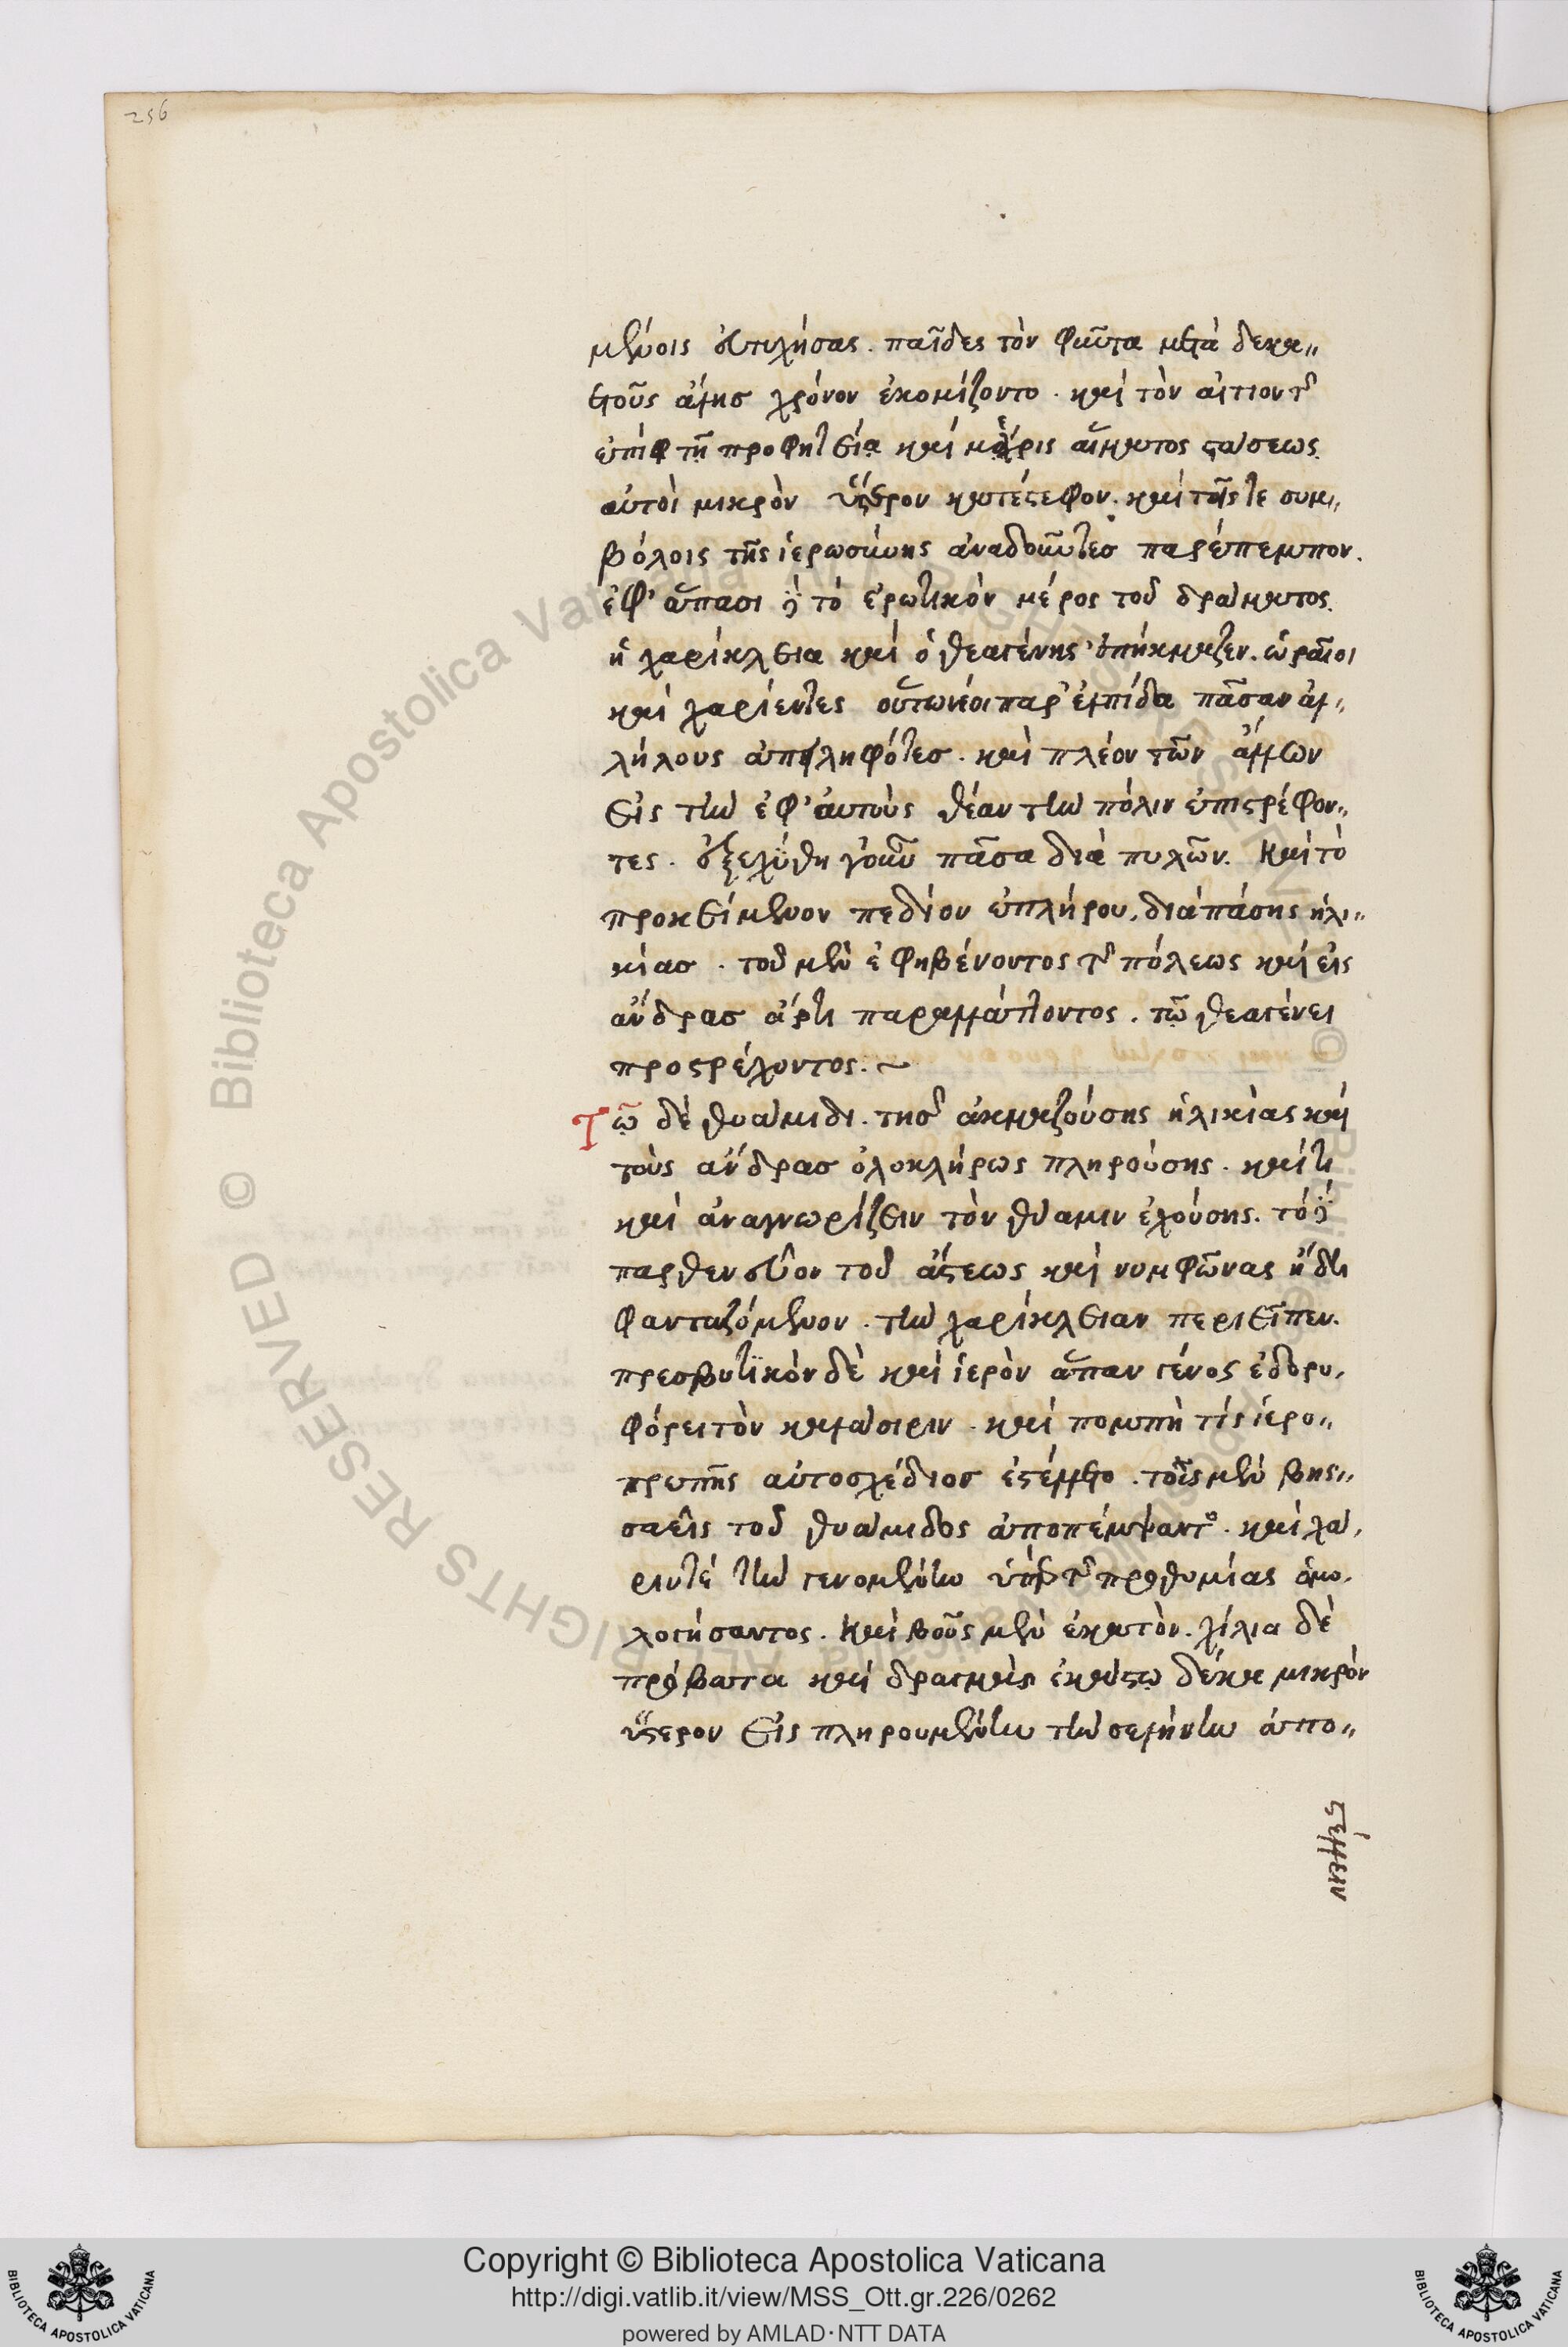 256
μένοις εὐτυχήσας. παῖδες τὸν φῦντα μετὰ δεκα„
ετοῦς ἄλης χρόνον ἐκομίζοντο. καὶ τὸν αἴτιον τῆς
ἐπὶ τῆ προφητεία καὶ μέχρις αἵματος στάσεως
αὐτοὶ μικρὸν ὕστερον κατέστεφον. καὶ τοῖς τε συμ„
βόλοις τῆς ἱερωσύνης ἀναδοῦντες παρέπεμπον.
ἐφ' ἅπασι δὲ τὸ ἐρωτικὸν μέρος τοῦ δράματος.
ἡ χαρίκλεια καὶ ὁ θεαγένης ἐπήκμαζεν. ὡραῖοι
καὶ χαρίεντες οὕτω νέοι παρ' ἐλπίδα πᾶσαν ἀλ„
λήλους ἀπειληφότες. καὶ πλέον τῶν ἄλλων
εἰς τὴν ἐφ' αὑτοὺς θέαν τὴν πόλιν ἐπιστρέφον„
τες. ἐξεχύθη γοῦν πᾶσα διὰ πυλῶν. καὶ τὸ
προκείμενον πεδίον ἐπλήρου. διὰ πάσης ἡλι„
κίας. τοῦ μὲν ἐφηβεύοντος τῆς πόλεως καὶ εἰς
ἄνδρας ἄρτι παραλλάττοντος. τῷ θεαγένει
προστρέχοντος: ~
Τῷ δὲ θυάμιδι. τῆς ἀκμαζούσης ἡλικίας καὶ
τοὺς ἄνδρας ὁλοκλήρως πληρούσης. καί τι
καὶ ἀναγνωρίζειν τὸν θύαμιν ἐχούσης. τὸ δὲ
παρθενεῦον τοῦ ἄστεως καὶ νυμφῶνας ἤδη
φανταζόμενον. τὴν χαρίκλειαν περιεῖπεν.
πρεσβυτικὸν δὲ καὶ ἱερὸν ἅπαν γένος ἐδορυ„
φόρει τὸν καλάσιριν. καὶ πομπή τις ἱερο„
πρεπὴς αὐτοσχέδιος ἐστέλλετο. τοὺς μὲν βησ„
σαεῖς τοῦ θυάμιδος ἀποπέμψαντος. καὶ χά„
ριν τὲ τὴν γενομένην ὑπὲρ τῆς προθυμίας ὁμο„
λογήσαντος. καὶ βοῦς μὲν ἑκατὸν. χίλια δὲ
πρόβατα καὶ δραγμὰς ἑκάστῳ δέκα μικρὸν
ὕστερον εἰς πληρουμένην τὴν σελήνην ἀπο„
στέλλειν
Copyright © Biblioteca Apostolica Vaticana
http://digi.vatlib.it/view/MSS_Ott.gr.226/0262
powered by AMLAD·NTT DATA